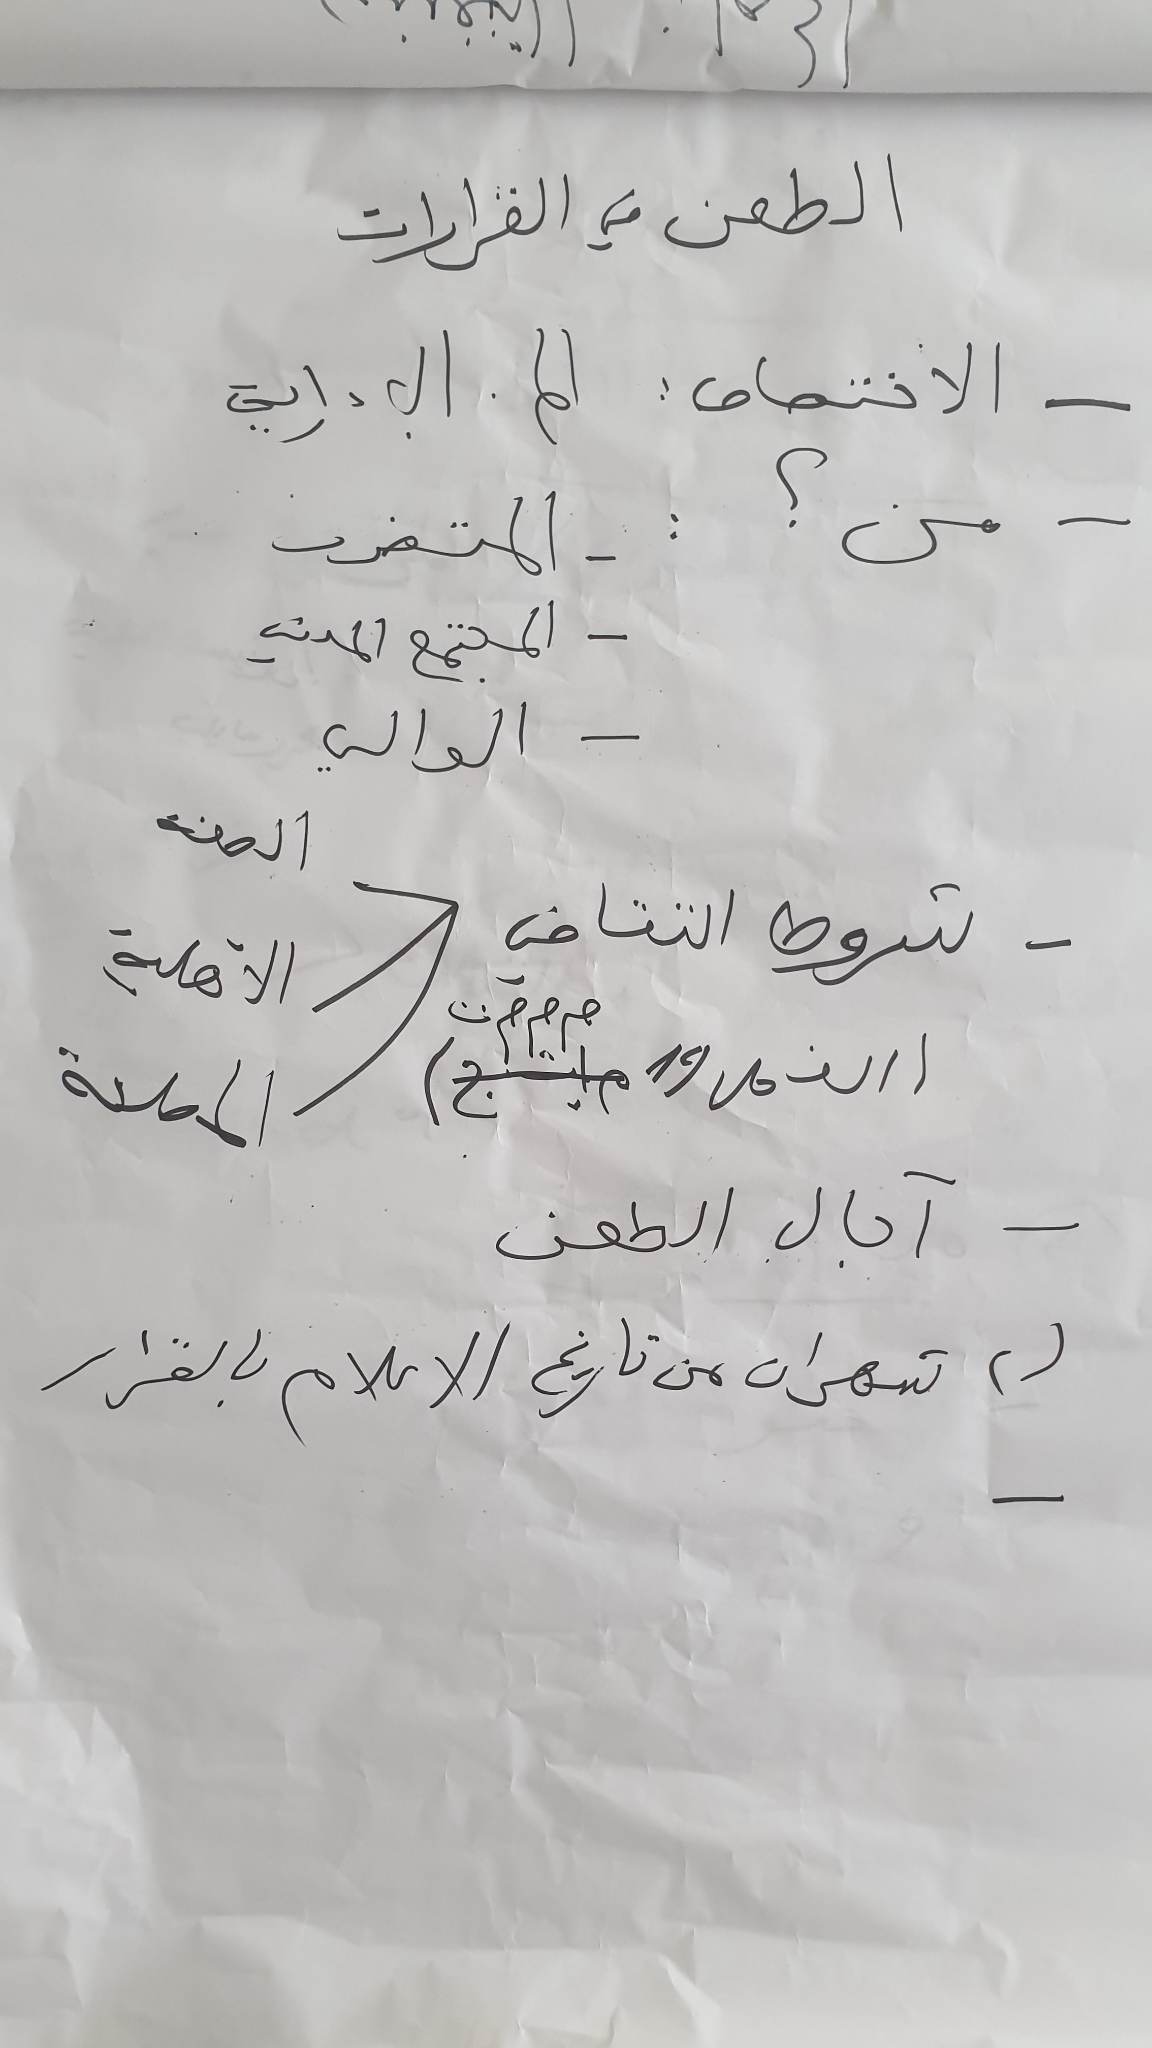 الطعن في القرارات
- الاختصاص : الم. الإدارية
- من ؟ : - المتضرر
- المجتمع المدني
- الوالي
- شروط التقاضي
الصفة
الأهلية
المصلحة
م م م ت
(الفصل 19
- آجال الطعن
شهران من تاريخ الاعلام بالقرار
-